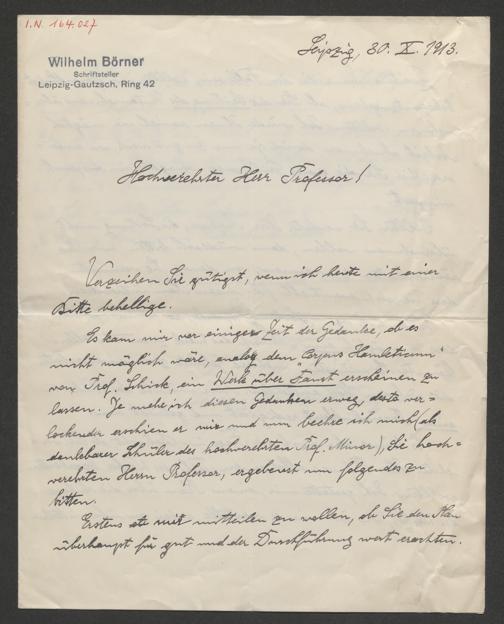 I.N. 164.027
Wilhelm Börner
Schriftsteller
Leipzig-Gautzsch, Ring 42
Leipzig, 30. X. 1913.
Hochverehrter Herr Professor!
Verzeihen Sie gütigst, wenn ich heute mit einer
Bitte behellige.
Es kam mir vor einiger Zeit der Gedanke, ob es
nicht möglich wäre, analog dem "Corpus Hamleticum"
von Prof. Schick, ein Werk über "Faust" erscheinen zu
lassen. Je mehr ich diesen Gedanken erwog, desto ver-
lockender erschien er mir und nun beehre ich mich (als
dankbarer Schüler des hochverehrten Prof. Minor), Sie hoch-
verehrten Herrn Professor, ergebenst um folgendes zu
bitten.
Erstens mir mitteilen zu wollen, ob Sie den Plan
überhaupt für gut und der Durchführung wert erachten.